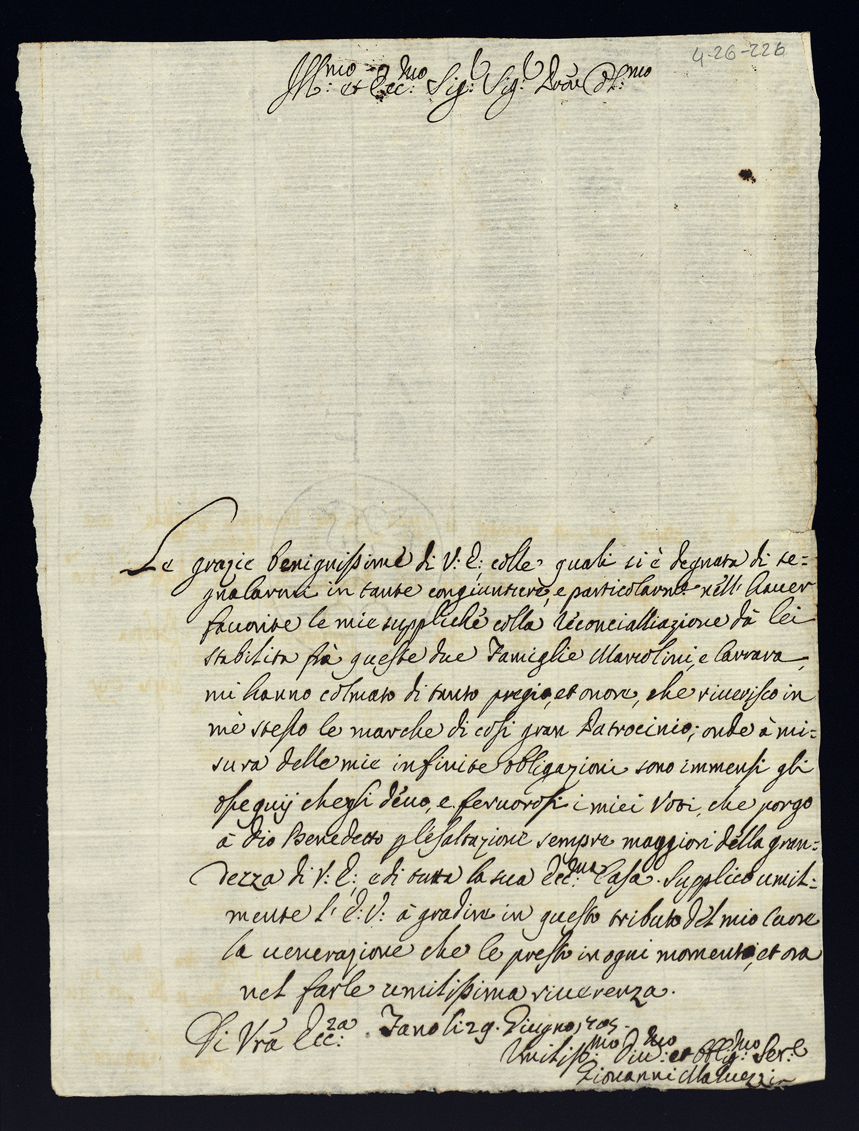 4-26-226
Ill:mo et Ecc:mo Sig:r Sig:r Prõn Col:mo
Le grazie benignissime di V: E: colle quali si è degnata di se=
gnalarmi in tante congiunture, e particolarm.te nell' hauer
fauorite le mie suppliche colla reconciliazione da lei
stabilita frà queste due Famiglie Marcolini, e Carrara,
mi hanno colmato di tanto pregio, et onore, che riuerisco in
mè stesso le marche di così gran Patrocinio; onde à mi=
sura delle mie infinite obligazioni sono immensi gli
ossequij che gli deuo, e feruorosi i miei Voti, che porgo
à Dio Benedetto p l'esaltazione sempre maggiori della gran=
dezza di V: E:, e di tutta la sua Ecc:ma Casa. Supplico umil=
mente l' E: V: à gradire in questo tributo del mio Cuore
la uenerazione che le presto in ogni momento, et ora
nel farle umilissima riuerenza.
Di Vrã Ecc:za Fano li 29. Giugno
Umiliss:mo Diu:mo et Oblig:mo Ser:e
Giouanni